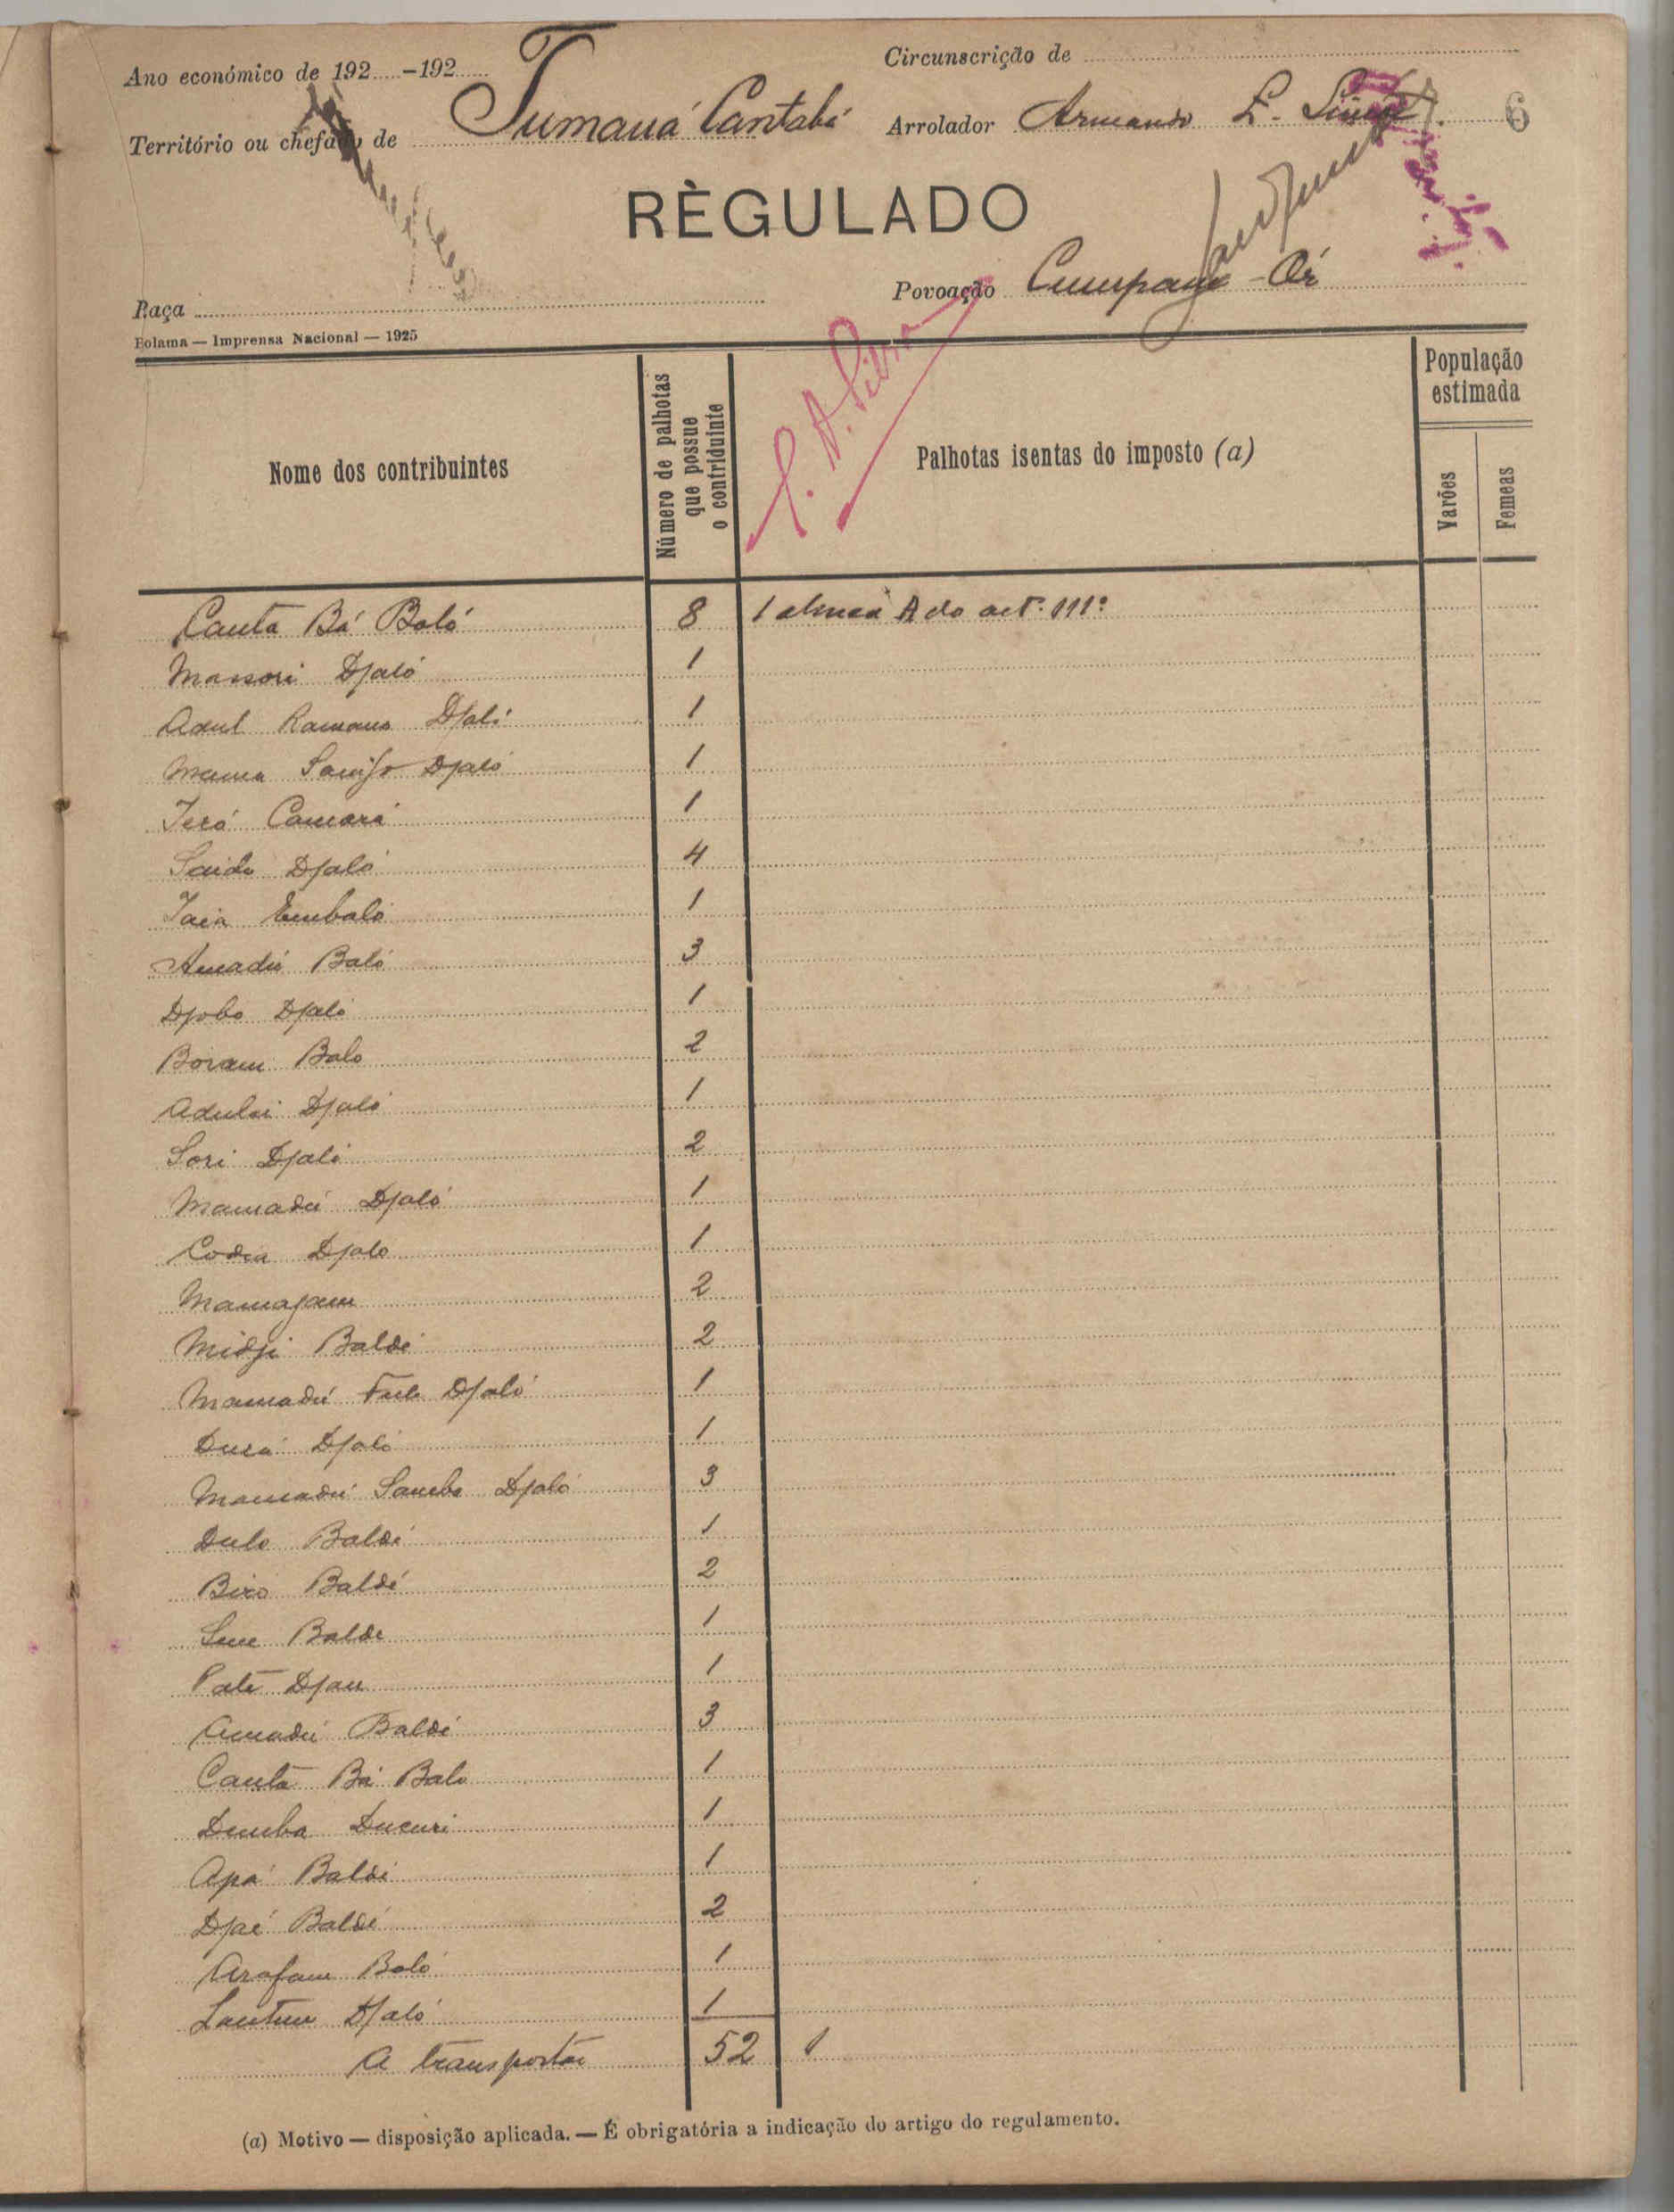 Ano económico de 192.....-192.....
Circunscrição de
Território ou chefado de Tumaná Cantabá
Arrolador Armando L.
6
RÈGULADO
Raça
Povoação
Bolama — Imprensa Nacional — 1925
Nome dos contribuintes
Número de palhotas que possue o contriduinte
Palhotas isentas do imposto (a)
População estimada
Varões
Femeas
Cauta Bá Baló 8 1 alinea A do art.º 111º
Massori Djaló 1
Adul Ramano Djaló 1
Djaló 1
Ieró Camará 1
Saido Djaló 4
Iaia Embaló 1
Amadú Baló 3
Djobo Djaló 1
Boram Balo 2
Adulai Djaló 1
Sori Djaló 2
Mamadú Djaló 1
Codea Djalo 1
Mamajam 2
Midji Baldé 2
Mamadú Djaló 1
Djaló 1
Mamadú Samba Djaló 3
Dulo Baldé 1
Biro Baldé 2
Balde 1
Paté Djau 1
Amadú Baldé 3
Cauta Bá Balo 1
Demba Ducuri 1
Apá Baldé 1
Djaé Baldé 2
Arafam Baló 1
Djaló 1
A transportar 52 1
(a) Motivo — disposição aplicada. — É obrigatória a indicação do artigo do regulamento.